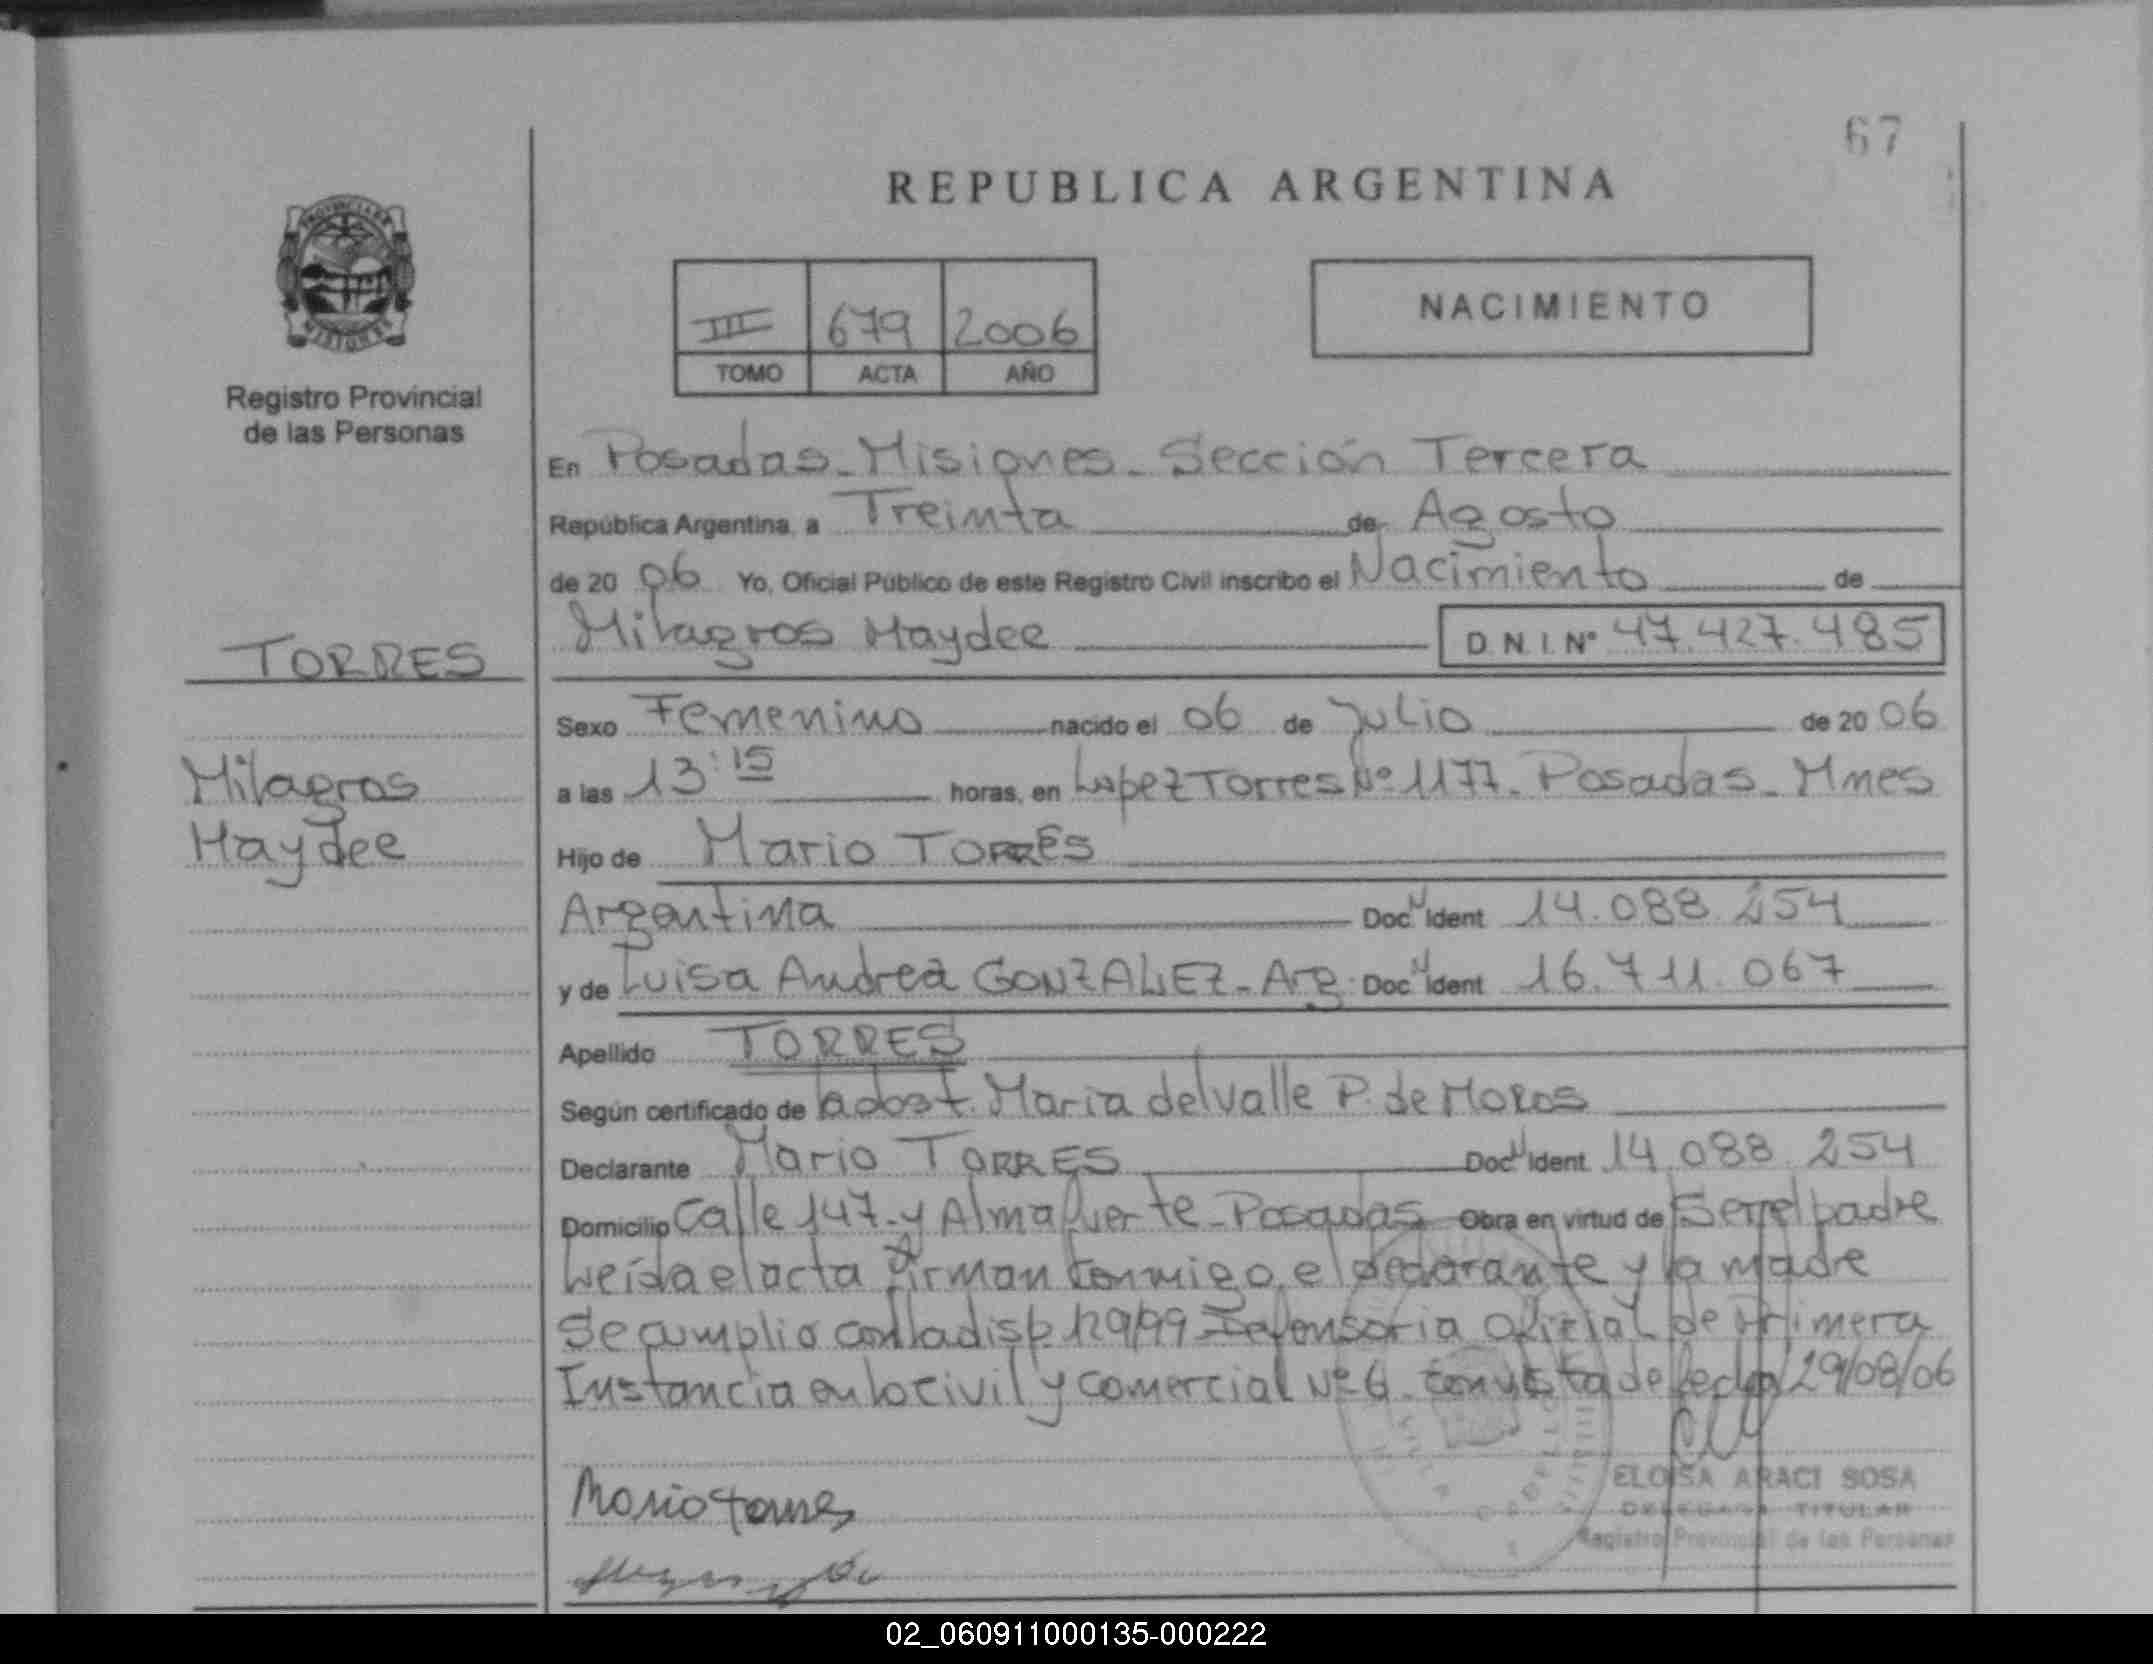 67
REPUBLICA ARGENTINA
PROVINCIA DE
MISIONES
III 679 2006
TOMO ACTA AÑO
NACIMIENTO
Registro Provincial
de las Personas
En Posadas - Misiones - Sección Tercera
República Argentina, a Treinta de Agosto
de 20 06 Yo, Oficial Público de este Registro Civil inscribo el Nacimiento de
Milagros Haydee D.N.I. Nº 47.427.485
TORRES
Sexo Femenino nacido el 06 de Julio de 20 06
Milagros
a las 13:15 horas, en Lopez Torres Nº 1177 - Posadas - Mnes
Haydee
Hijo de Mario TORRES
Argentina Doc. Ident 14.088.254
y de Luisa Andrea GONZALEZ - Arg. Doc. Ident 16.711.067
Apellido TORRES
Según certificado de la obst. Maria del Valle P. de Moros
Declarante Mario TORRES Doc. Ident 14.088.254
Domicilio Calle 147 y Almafuerte - Posadas Obra en virtud de Ser el padre
Leída el acta firman conmigo el declarante y la madre
Se cumplio con la disp. 129/99 Defensoria Oficial de Primera
Instancia en lo civil y comercial Nº 6 con vista de fecha 29/08/06
Mario Torres
ELOISA ARACI SOSA
DELEGADA TITULAR
Registro Provincial de las Personas
02_060911000135-000222